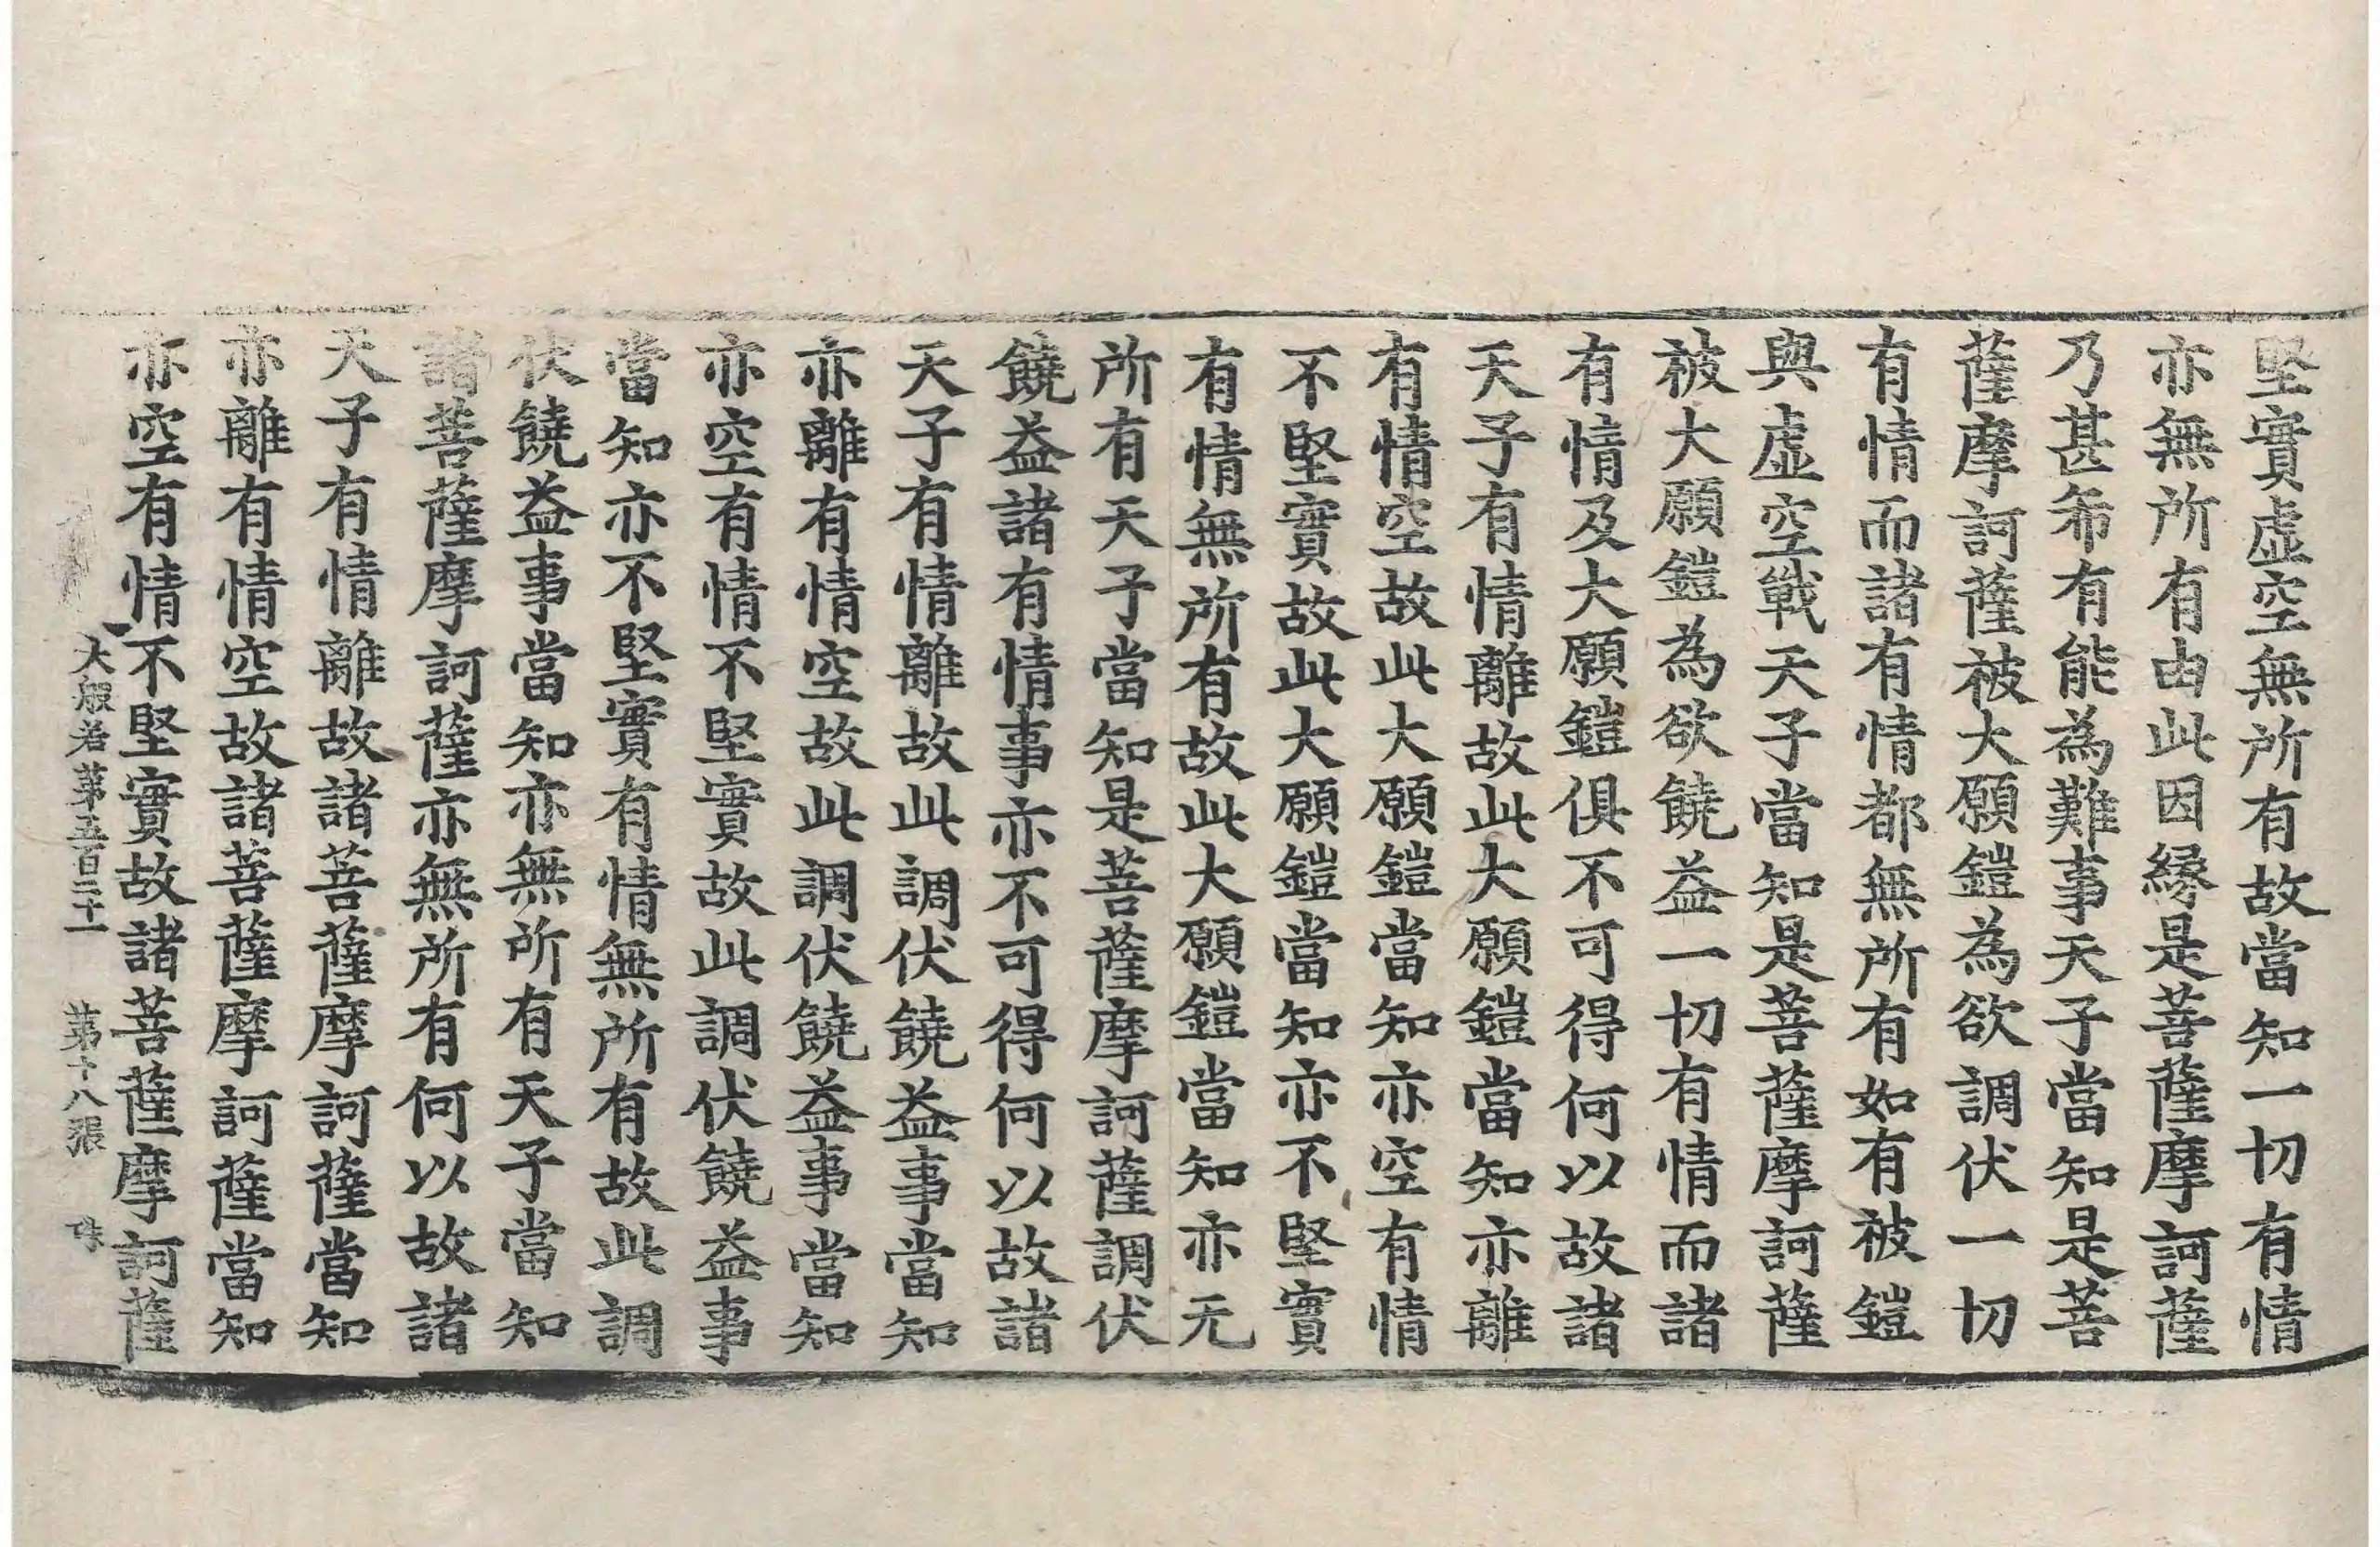 堅實虛空無所有故當知一切有情
亦無所有由此因緣是菩薩摩訶薩
乃甚希有能為難事天子當知是菩
薩摩訶薩被大願鎧為欲調伏一切
有情而諸有情都無所有如有被鎧
與虛空戰天子當知是菩薩摩訶薩
被大願鎧為欲饒益一切有情而諸
有情及大願鎧俱不可得何以故諸
天子有情離故此大願鎧當知亦離
有情空故此大願鎧當知亦空有情
不堅實故此大願鎧當知亦不堅實
有情無所有故此大願鎧當知亦无
所有天子當知是菩薩摩訶薩調伏
饒益諸有情事亦不可得何以故諸
天子有情離故此調伏饒益事當知
亦離有情空故此調伏饒益事當知
亦空有情不堅實故此調伏饒益事
當知亦不堅實有情無所有故此調
伏饒益事當知亦無所有天子當知
諸菩薩摩訶薩亦無所有何以故諸
天子有情離故諸菩薩摩訶薩當知
亦離有情空故諸菩薩摩訶薩當知
亦空有情不堅實故諸菩薩摩訶薩
大般若第五百二十一 第十八張